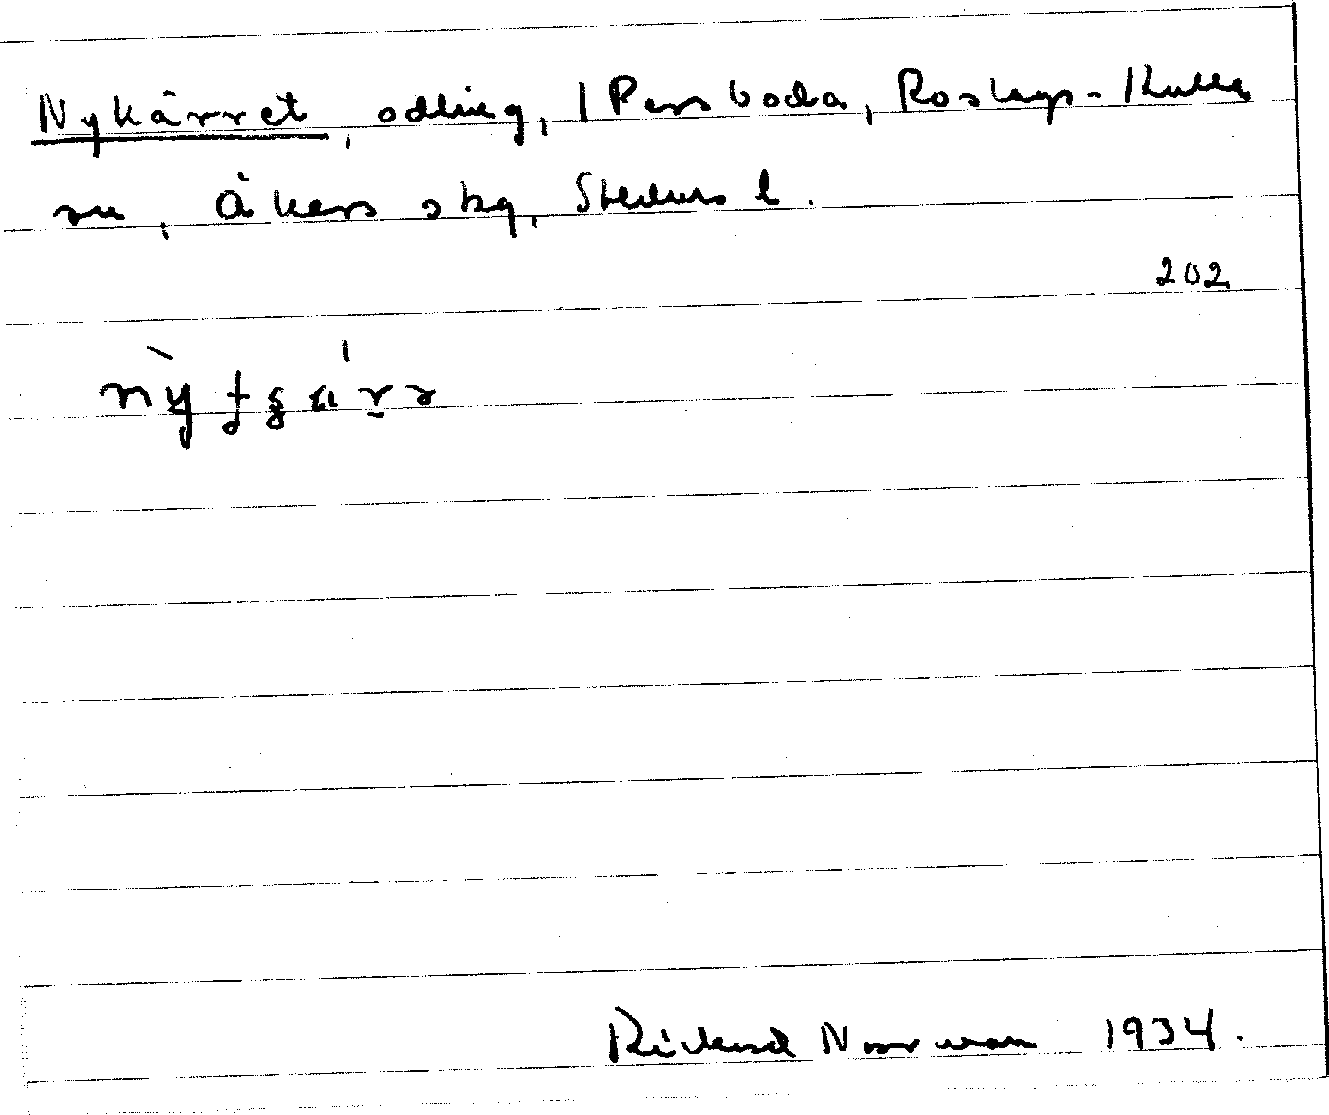 Nykärret, odling, Persboda, Roslags-Kulla
sn, Åkers skg, Sthlms l.
202
Rickard Norrman 1934.